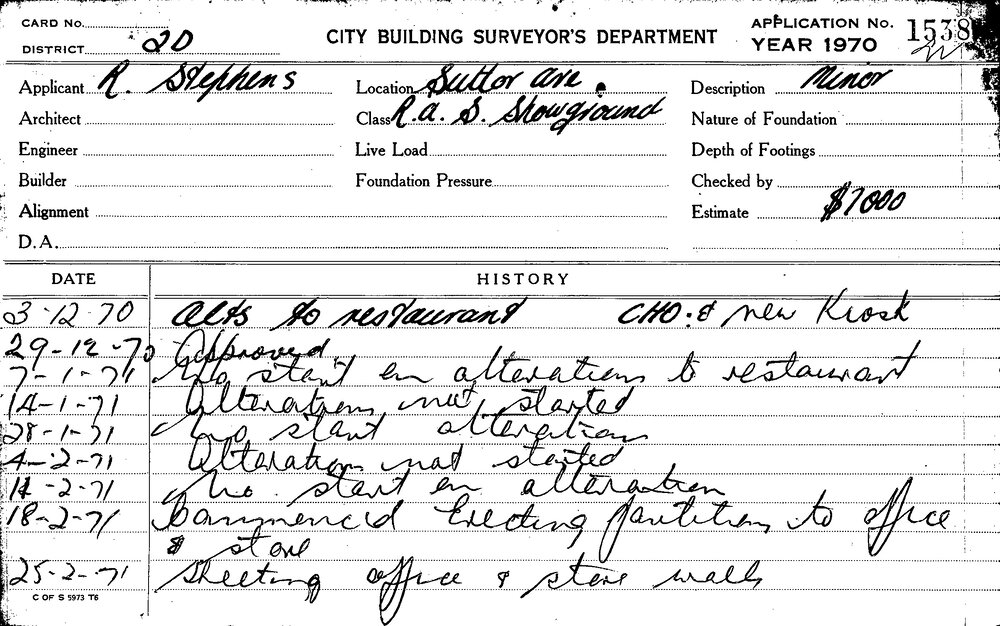 CARD No.
DISTRICT 2D
CITY BUILDING SURVEYOR'S DEPARTMENT
APPLICATION No. 1538
YEAR 1970
Applicant R. Stephens
Location Suttor ave.
Description Minor
Architect
Class R.a.S. Showground
Nature of Foundation
Engineer
Live Load
Depth of Footings
Builder
Foundation Pressure
Checked by
Alignment
Estimate $7000
D.A.
DATE HISTORY
3-12-70 alts to restaurant CHO. & new Kiosk
29-12-70 Approved
7-1-71 No start on alterations to restaurant
14-1-71 Alterations not started
28-1-71 No start alterations
4-2-71 Alteration not started
11-2-71 No start on alteration
18-2-71 Commenced Erecting partitions to office
& store
25-2-71 Sheeting office & store walls
C OF S 5973 T6